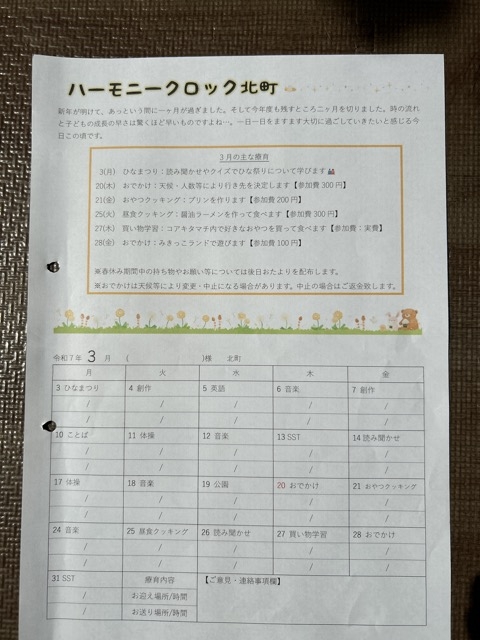 ハーモニークロック北町
新年が明けて、あっという間に一ヶ月が過ぎました。そして今年度も残すところ二ヶ月を切りました。時の流れ
と子どもの成長の早さは驚くほど早いものですよね…。一日一日をますます大切に過ごしていきたいと感じる今
日この頃です。
3月の主な療育
3(月) ひなまつり:読み聞かせやクイズでひな祭りについて学びます
20(木) おでかけ:天候・人数等により行き先を決定します【参加費300円】
21(金) おやつクッキング:プリンを作ります【参加費200円】
25(火) 昼食クッキング:醤油ラーメンを作って食べます【参加費300円】
27(木) 買い物学習:コアキタマチ内で好きなおやつを買って食べます【参加費:実費】
28(金) おでかけ:みきっこランドで遊びます【参加費100円】
※春休み期間中の持ち物やお願い等については後日おたよりを配布します。
※おでかけは天候等により変更・中止になる場合があります。中止の場合はご返金致します。
令和7年 3 月 ( )様 北町
月 火 水 木 金
3 ひなまつり 4 創作 5 英語 6 音楽 7 創作
/ / / / /
/ / / / /
10 ことば 11 体操 12 音楽 13 SST 14 読み聞かせ
/ / / / /
/ / / / /
17 体操 18 音楽 19 公園 20 おでかけ 21 おやつクッキング
/ / / / /
/ / / / /
24 音楽 25 昼食クッキング 26 読み聞かせ 27 買い物学習 28 おでかけ
/ / / / /
/ / / / /
31 SST 療育内容 【ご意見・連絡事項欄】
/ お迎え場所/時間
/ お送り場所/時間